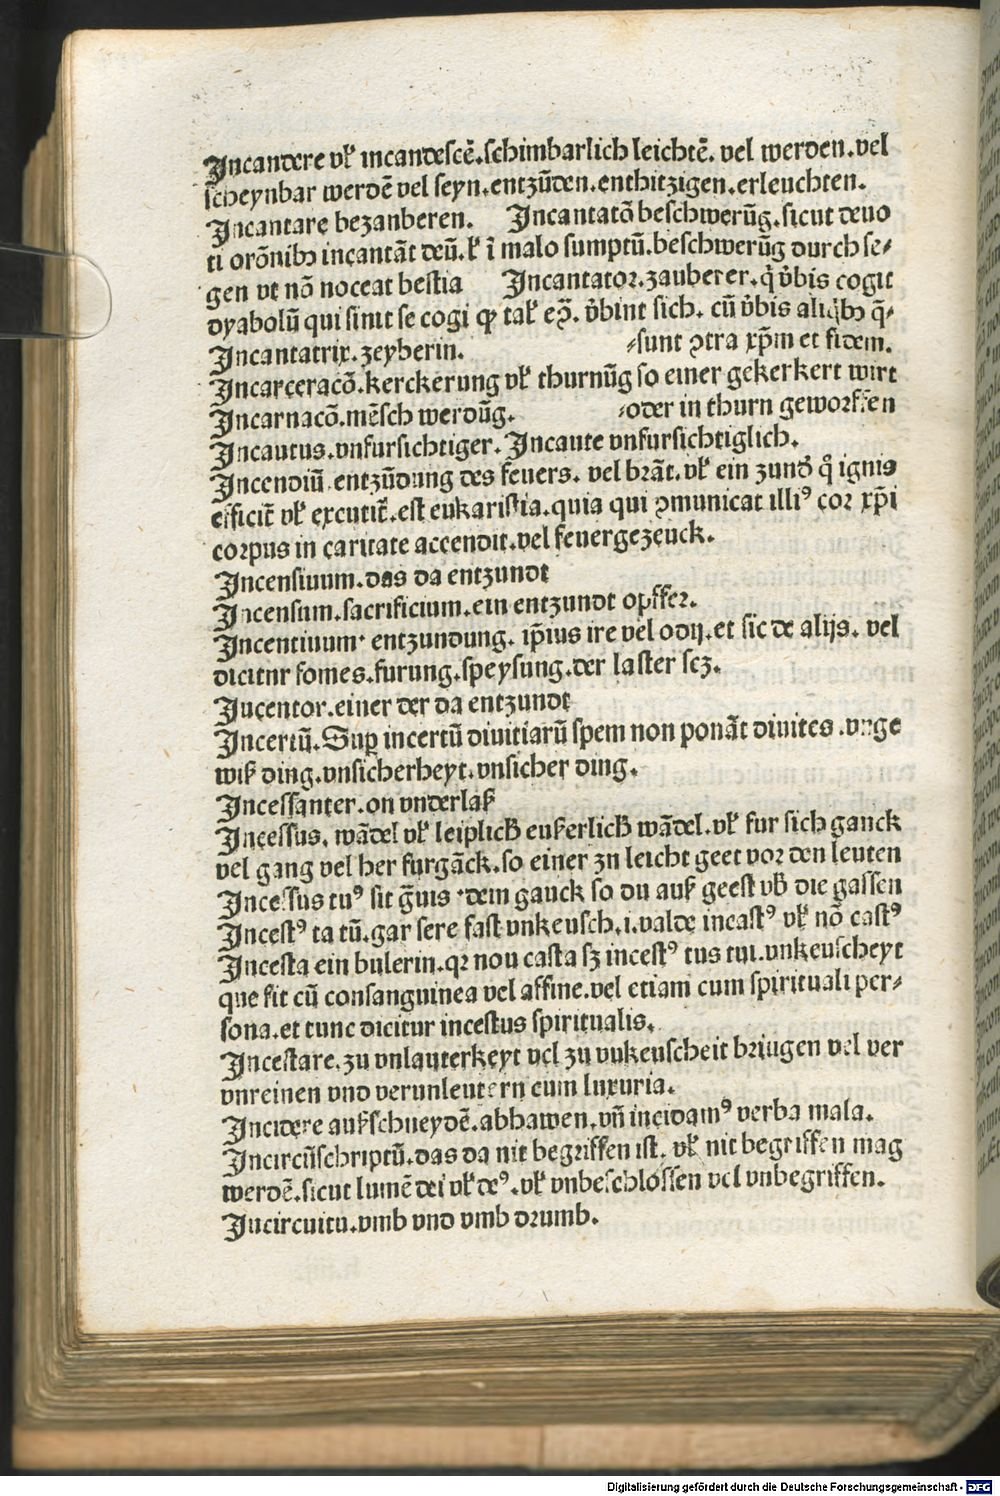 Incandere vƚ incandescē.schimbarlich leichtē.vel werden.vel
scheynbar werdē vel seyn.entzūden.enthitzigen.erleuchten.
Incantare bezanberen. Incantatō beschwerūg.sicut deuo
ti orōnibꝫ incantāt deū.ƚ ī malo sumptū.beschwerūg durch se⸗
gen vt nō noceat bestia Incantator.zauberer.q̇ v̓bis cogit
dyabolū qui sinit se cogi ꝙ taƚ eꝝ. v̓bint sich. cū v̓bis aliq̇bꝫ q̄⸗
Incantatrix.zeyberin. ⸗sunt ꝯtra xp̄m et fidem.
Incarceracō.kerckerung vƚ thurnūg so einer gekerkert wirt
Incarnacō.mēsch werdūg. ⸗oder in thurn geworffen
Incautus.vnfursichtiger.Incaute vnfursichtiglich.
Incendiū.entzūdung des feuers. vel brāt.vƚ ein zund q̇ ignis
efficit̄ vƚ excutit̄.est eukaristia.quia qui ꝯmunicat illiꝰ cor xp̄i
corpus in caritate accendit.vel feuergezeuck.
Incensiuum.das da entzundt
Incensum.sacrificium.ein entzundt opffer.
Incentiuum· entzundung. ip̄ius ire vel odij.et sic de alijs. vel
dicitnr fomes.furung.speysung.der laster scꝫ.
Iucentor.einer der da entzundt
Incertū.Suꝑ incertū diuitiarū spem non ponāt diuites.vnge
wiß ding.vnsicherheyt.vnsicher ding.
Incessanter.on vnderlaß
Incessus. wādel vƚ leiplich eußerlich wādel.vƚ fur sich ganck
vel gang vel her furgāck.so einer zn leicht geet vor den leuten
Incessus tuꝰ sit g̃uis ·dem gauck so du auß geest vḃ die gassen
Incestꝰ ta tū.gar sere fast vnkeusch.i.valde incastꝰ vƚ nō castꝰ
Incesta ein bulerin.qꝛ nou casta sꝫ incestꝰ tus tui.vnkeuscheyt
que fit cū consanguinea vel affine.vel etiam cum spirituali per⸗
sona.et tunc dicitur incestus spiritualis.
Incestare.zu vnlauterkeyt vel zu vukeuscheit briugen vel ver
vnreinen vnd verunleutern cum luxuria.
Incidere aufschueydē.abhawen.vn̄ incidamꝰ verba mala.
Incircūscriptū.das da nit begriffen ist. vƚ nit begriffen mag
werdē.sicut lumē dei vƚ deꝰ.vƚ vnbeschlossen vel vnbegriffen.
Iucircuitu.vmb vnd vmb drumb.
Digitalisierung gefördert durch die Deutsche Forschungsgemeinschaft - DFG